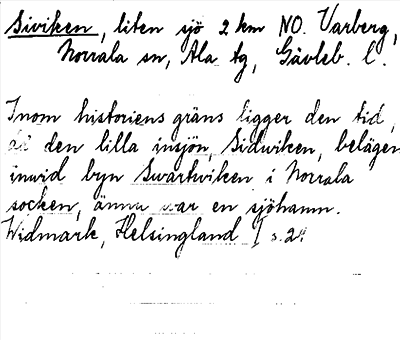 Siviken, liten sjö 2 km NO. Varberg,
Norrala sn, Ala tg, Gävleb. l.
Inom historiens gräns ligger den tid,
då den lilla insjön, Sidwiken, belägen
inwid byn Swartwiken i Norrala
socken, ännu war en sjöhamn.
Widmark, Helsingland I s. 24